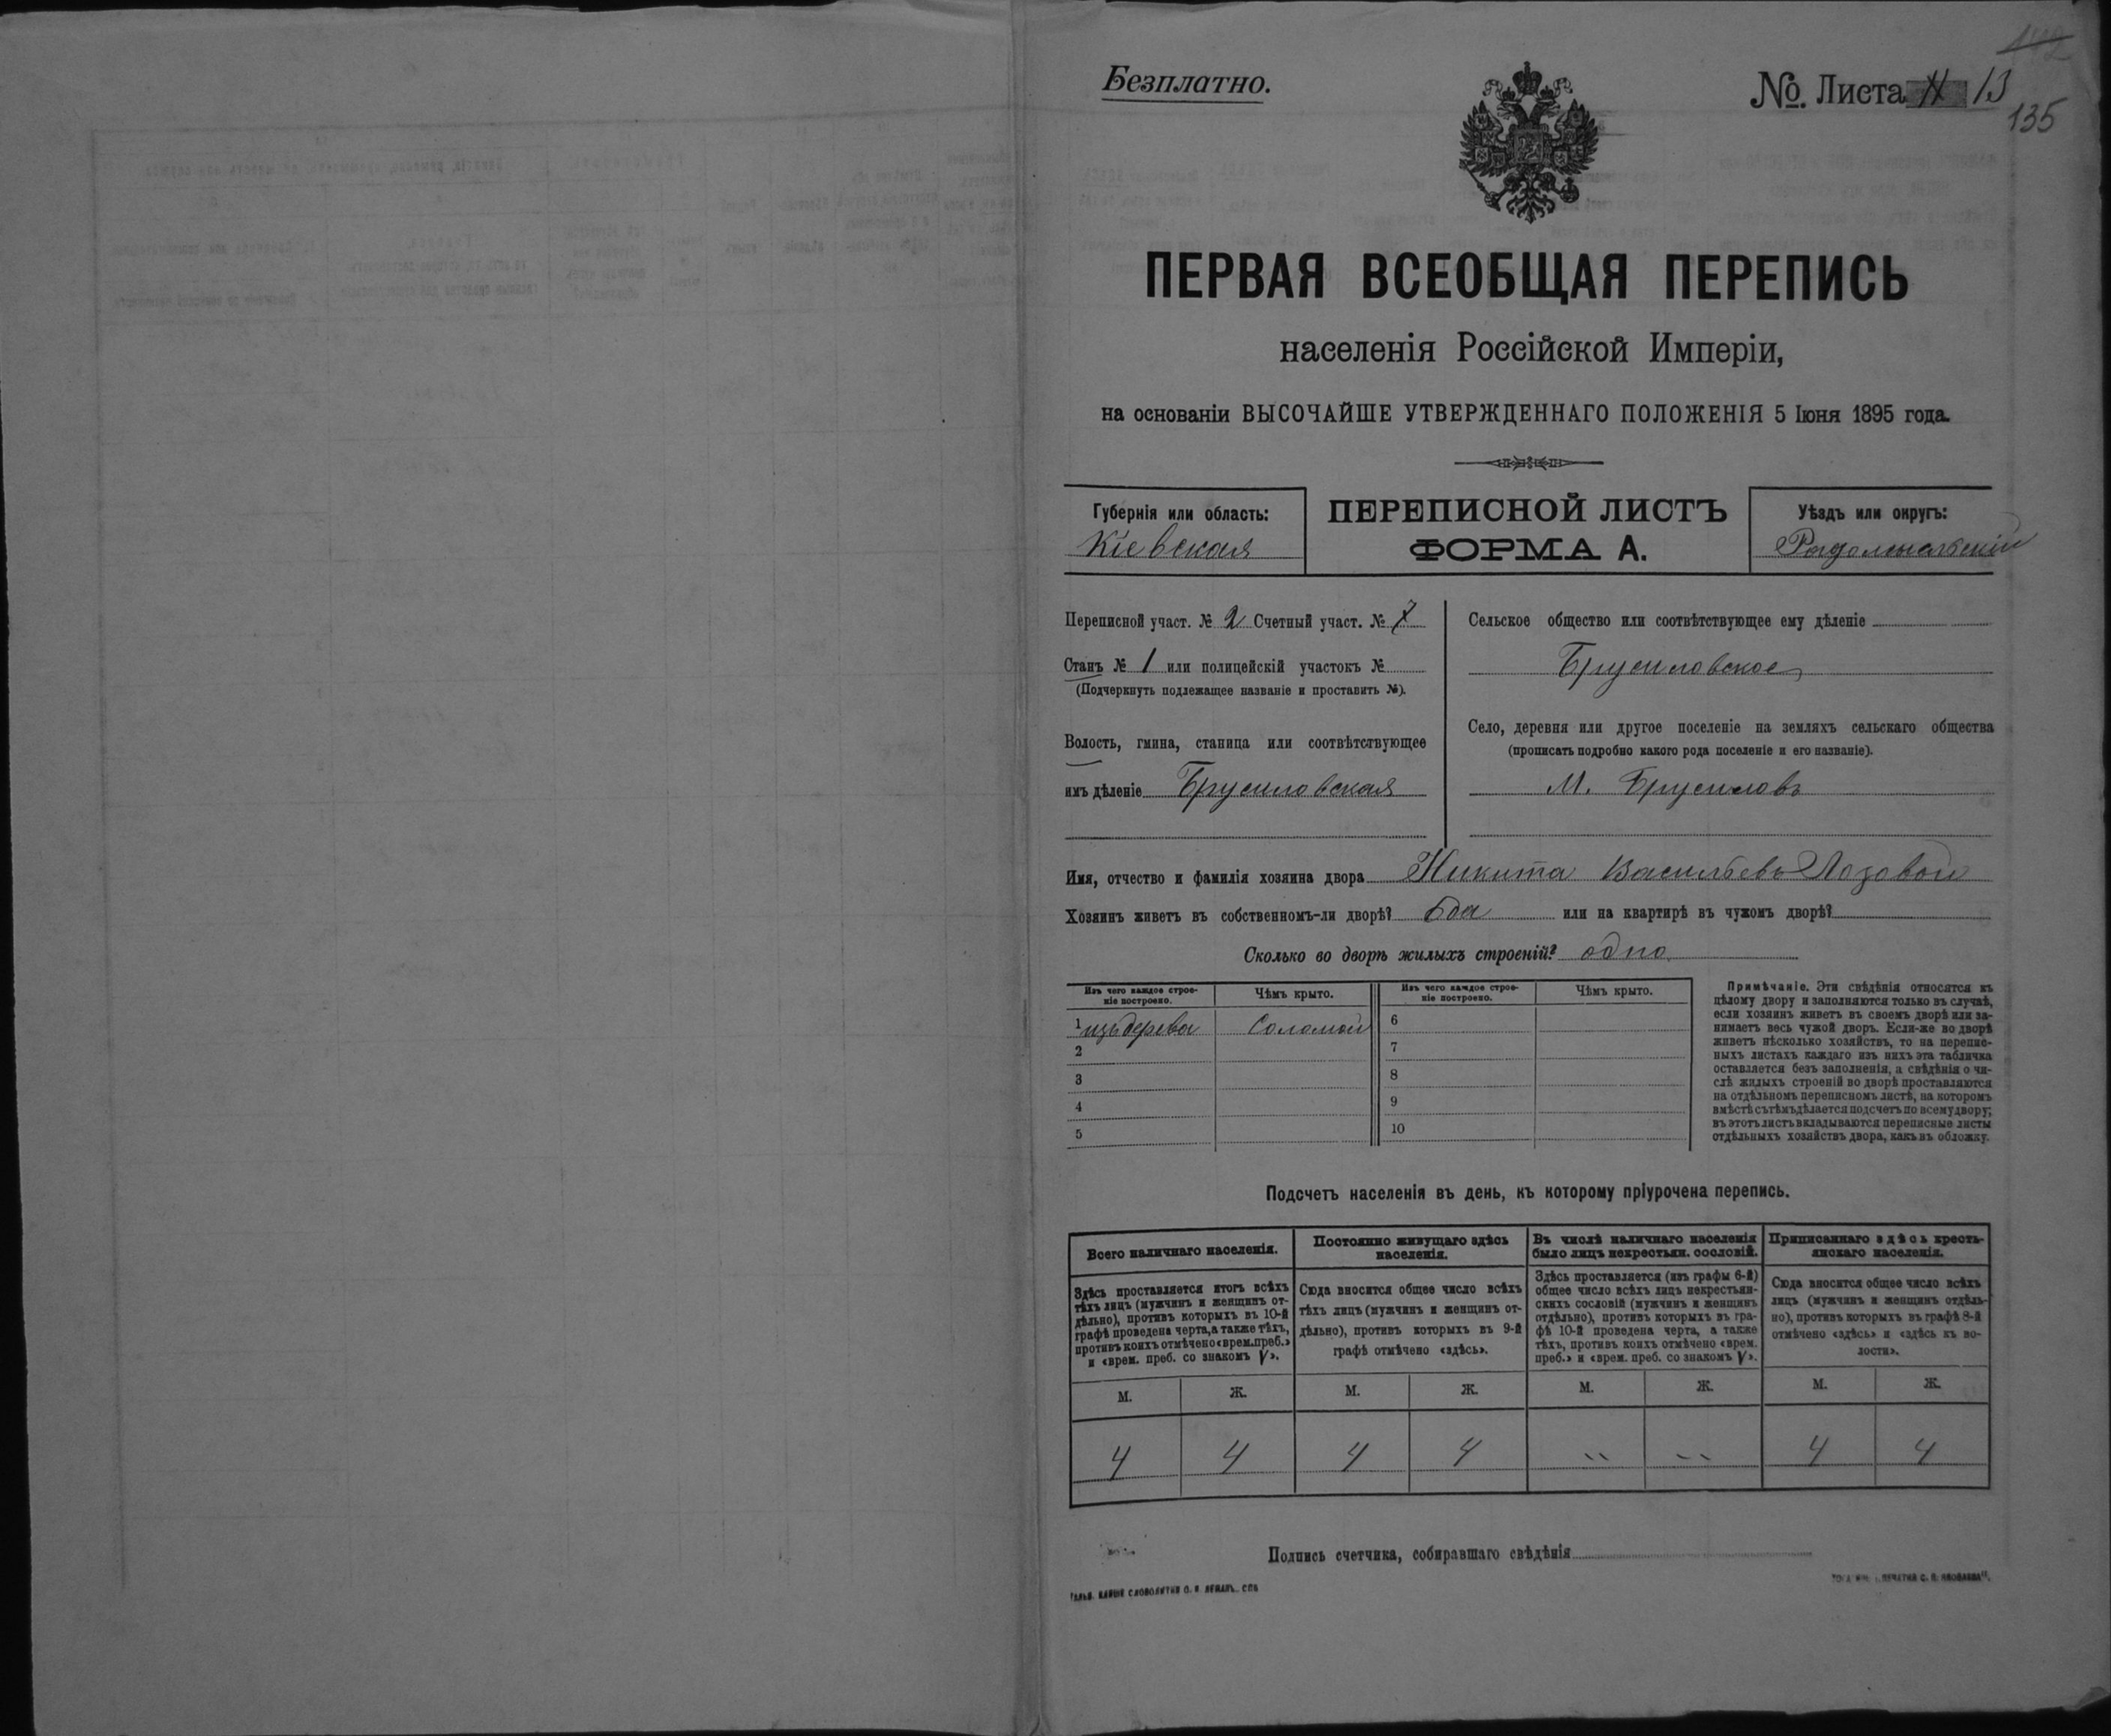 142
Безплатно.
№. Листа 13
135
ПЕРВАЯ ВСЕОБЩАЯ ПЕРЕПИСЬ
населенія Россійской Имперіи,
на основаніи ВЫСОЧАЙШЕ УТВЕРЖДЕННАГО ПОЛОЖЕНІЯ 5 Іюня 1895 года.
Губернія или область:
Кіевская
ПЕРЕПИСНОЙ ЛИСТЪ
ФОРМА А.
Уѣздъ или округъ:
Радомысльскій
Переписной участ. № 2 Счетный участ. № 7
Станъ № 1 или полицейскій участокъ №
(Подчеркнуть подлежащее названіе и проставить №).
Волость, гмина, станица или соотвѣтствующее
имъ дѣленіе Брусиловская
Сельское общество или соотвѣтствующее ему дѣленіе
Брусиловское
Село, деревня или другое поселеніе на земляхъ сельскаго общества
(прописать подробно какого рода поселеніе и его названіе).
М. Брусиловъ
Имя, отчество и фамилія хозяина двора Никита Васильевъ Лозовой
Хозяинъ живетъ въ собственномъ-ли дворѣ? да или на квартирѣ въ чужомъ дворѣ?
Сколько во дворѣ жилыхъ строеній? одно
Изъ чего каждое строе-
ніе построено.
Чѣмъ крыто.
Изъ чего каждое строе-
ніе построено.
Чѣмъ крыто.
1 изъ дерева Соломой 6
2 7
3 8
4 9
5 10
Примѣчаніе. Эти свѣдѣнія относятся къ
цѣлому двору и заполняются только въ случаѣ,
если хозяинъ живетъ въ своемъ дворѣ или за-
нимаетъ весь чужой дворъ. Если-же во дворѣ
живетъ нѣсколько хозяйствъ, то на перепис-
ныхъ листахъ каждаго изъ нихъ эта табличка
оставляется безъ заполненія, а свѣдѣнія о чи-
слѣ жилыхъ строеній во дворѣ проставляются
на отдѣльномъ переписномъ листѣ, на которомъ
вмѣстѣ съ тѣмъ дѣлается подсчетъ по всему двору;
въ этотъ листъ вкладываются переписные листы
отдѣльныхъ хозяйствъ двора, какъ въ обложку.
Подсчетъ населенія въ день, къ которому пріурочена перепись.
Всего наличнаго населенія.
Здѣсь проставляется итогъ всѣхъ
тѣхъ лицъ (мужчинъ и женщинъ от-
дѣльно), противъ которыхъ въ 10-й
графѣ проведена черта, а также тѣхъ,
противъ коихъ отмѣчено «врем. преб.»
и «врем. преб. со знакомъ V».
Постоянно живущаго здѣсь
населенія.
Сюда вносится общее число всѣхъ
тѣхъ лицъ (мужчинъ и женщинъ от-
дѣльно), противъ которыхъ въ 9-й
графѣ отмѣчено «здѣсь».
Въ числѣ наличнаго населенія
было лицъ некрестьян. сословій.
Здѣсь проставляется (изъ графы 6-й)
общее число всѣхъ лицъ некрестьян-
скихъ сословій (мужчинъ и женщинъ
отдѣльно), противъ которыхъ въ гра-
фѣ 10-й проведена черта, а также
тѣхъ, противъ коихъ отмѣчено «врем.
преб.» и «врем. преб. со знакомъ V».
Приписаннаго здѣсь кресть-
янскаго населенія.
Сюда вносится общее число всѣхъ
лицъ (мужчинъ и женщинъ отдѣль-
но), противъ которыхъ въ графѣ 8-й
отмѣчено «здѣсь» и «здѣсь къ во-
лости».
М. Ж. М. Ж. М. Ж. М. Ж.
4 4 4 4 " " 4 4
Подпись счетчика, собиравшаго свѣдѣнія
СЛОВОЛИТНИ О. И. ЛЕМАНЪ. СПБ